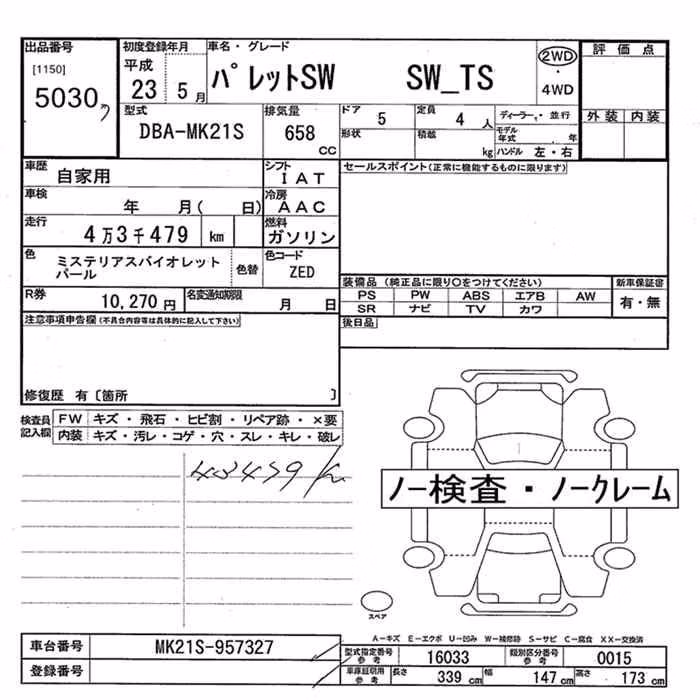 出品番号
[1150]
5030
初度登録年月
平成
23 5 月
車名・グレード
パレットSW SW_TS
2WD
・
4WD
評価点
外装 内装
型式
DBA-MK21S
排気量
658
CC
ドア
5
定員
4 人
形状
積載
kg
ディーラー・並行
モデル年式 . 年
ハンドル 左・右
車歴
自家用
シフト
I A T
セールスポイント(正常に機能するものに限ります)
車検
年 月( 日)
冷房
A A C
走行
4万3千479 km
燃料
ガソリン
色
ミステリアスバイオレット
パール
色替
色コード
ZED
装備品 (純正品に限り○をつけてください)
PS PW ABS エアB AW
SR ナビ TV カワ
新車保証書
有・無
R券
10,270 円
名変通知期限
月 日
後日品
注意事項申告欄(不具合内容等は具体的に記入して下さい)
修復歴 有〔箇所 〕
検査員
記入欄
FW キズ・飛石・ヒビ割・リペア跡・×要
内装 キズ・汚レ・コゲ・穴・スレ・キレ・破レ
43479 km
ノー検査・ノークレーム
スペア
A-キズ E-エクボ U-凹み W-補修跡 S-サビ C-腐食 XX-交換済
車台番号 MK21S-957327
登録番号
型式指定番号
参考
16033
類別区分番号
参考
0015
車庫証明用
参考
長さ 339 cm 幅 147 cm 高さ 173 cm